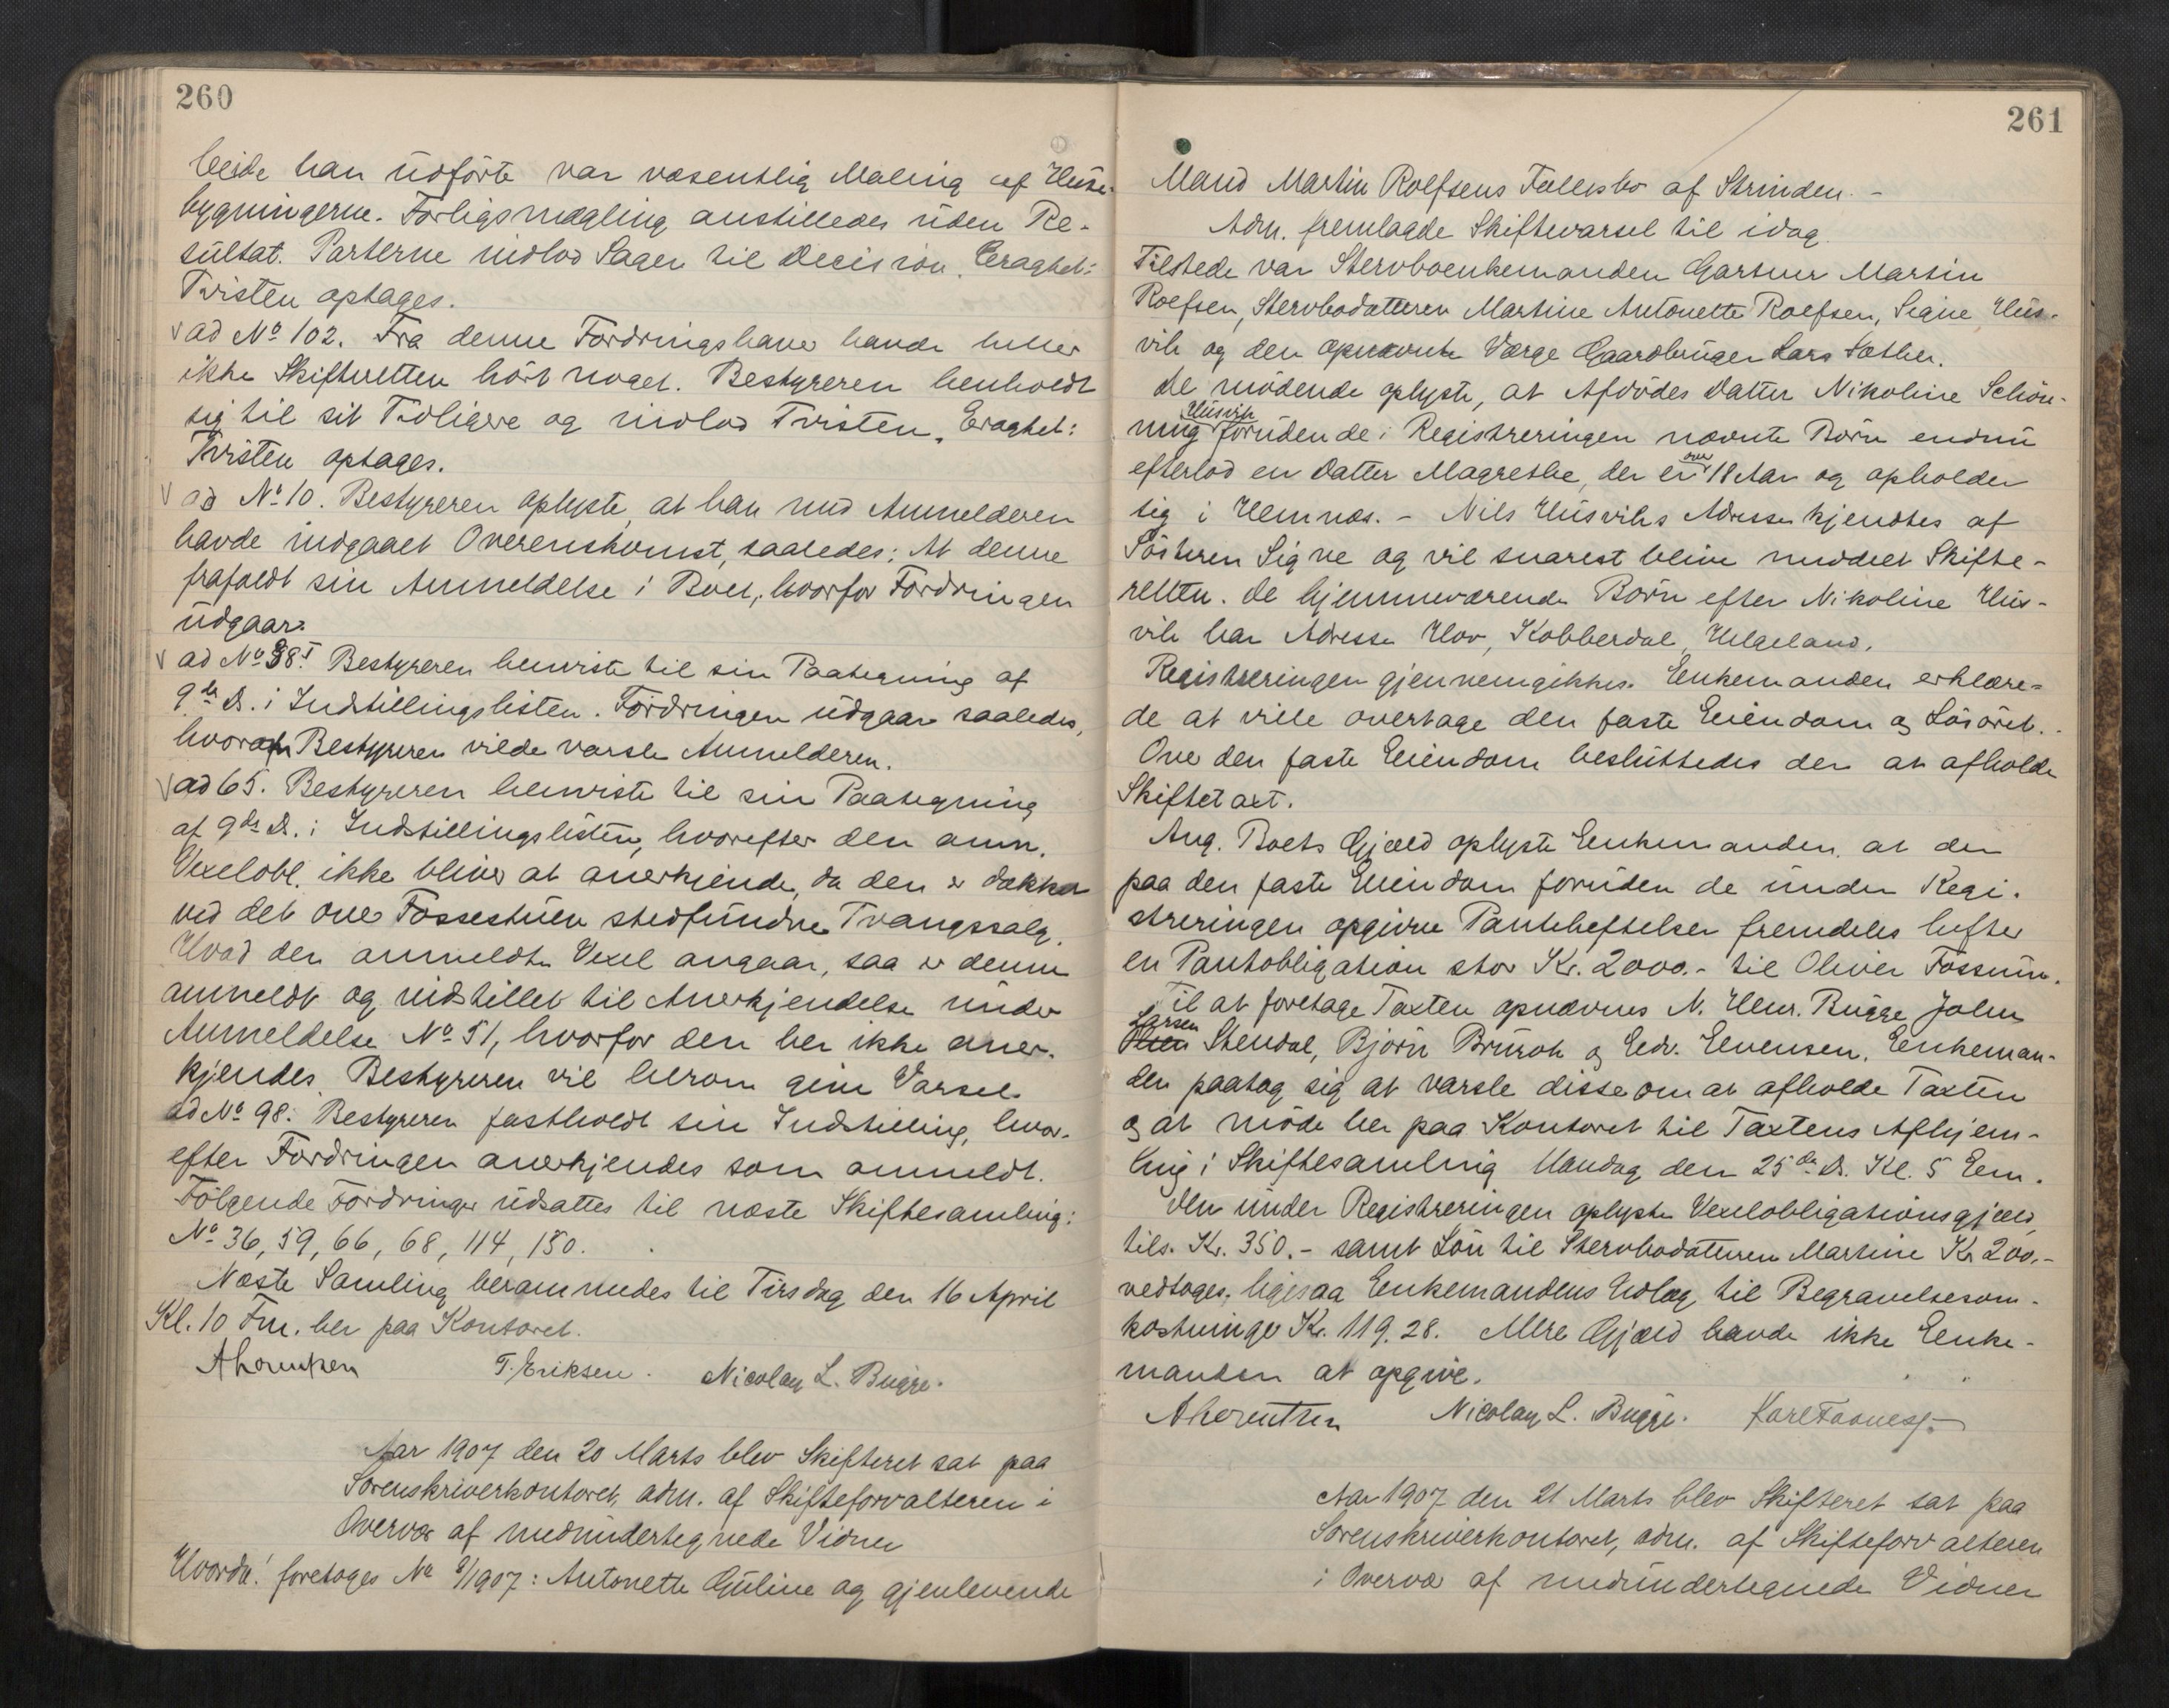 260
beide han udförte var væsentlig Maling af Huse-
bygningerne. Forligsmægling anstilledes uden Re-
sultat. Parterne indlod Sagen til Decision. Eragtet:
Tvisten optages.
ad No 102. Fra denne Fordringshaver havde heller
ikke Skifteretten hört noget. Bestyreren henholdt
sig til sit Tidligere og indlod Tvisten. Eragtet:
Tvisten optages.
ad No 10. Bestyreren oplyste, at han med Anmelderen
havde indgaaet Overenskomst, saaledes: At denne
frafaldt sin Anmeldelse i Boet, hvorfor Fordringen
udgaar.
ad No 38 I Bestyreren henviste til sin Paategning af
9de ds. i Indstillingslisten. Fordringen udgaar saaledes,
hvorom Bestyreren vilde varsle Anmelderen.
ad 65. Bestyreren henviste til sin Paategning
af 9de ds. i Indstillingslisten, hvorefter den anm.
Vexelobl. ikke bliver at anerkjende, da den er dækket
ved det over Fossestuen stedfundne Tvangssalg.
Hvad den anmeldte Vexel angaar, saa er denne
anmeldt og indstillet til Anerkjendelse under
Anmeldelse No 51, hvorfor den her ikke aner-
kjendes. Bestyreren vil herom give Varsel.
ad No 98. Bestyreren fastholdt sin Indstilling, hvor-
efter Fordringen anerkjendes som anmeldt.
Fölgende Fordringer udsattes til næste Skiftesamling:
No 36, 59, 66, 68, 114, 150.
Næste Samling berammedes til Tirsdag den 16 April
Kl. 10 Fm. her paa Kontoret.
T. Eriksen. Nicolay L. Bugge.
Aar 1907 den 20 Marts blev Skifteret sat paa
Sorenskriverkontoret, adm. af Skifteforvalteren i
Overvær af medundertegnede Vidner
Hvorda! foretoges No 8/1907: Antonette Guline og gjenlevende
261
Mand Martin Rolfsens Fællesbo af Strinden. -
Adm. fremlagde Skiftevarsel til idag.
Tilstede var Stervboenkemanden Gartner Martin
Roefsen, Stervbodatteren Martine Antonette Roefsen, Signe Hus-
vik og den opnævnte Værge Gaardbruger Lars Sæther.
De mödende oplyste, at Afdödes Datter Nikoline Schön-
ning Husvik foruden de i Registreringen nævnte Börn endnu
efterlod en Datter Magrethe, der er over 18 Aar og opholder
sig i Hemnæs. - Nils Husviks Adresse kjendtes af
Sösteren Signe og vil snarest blive meddelt Skifte-
retten. De hjemmeværende Börn efter Nikoline Hus-
vik har Adresse Hov, Kobberdal, Helgeland.
Registreringen gjennemgikkes. Enkemanden erklære-
de at ville overtage den faste Eiendom og Lösöret.
Over den faste Eiendom besluttedes der at afholde
Skiftetaxt.
Ang. Boets Gjæld oplyste Enkemanden at der
paa den faste Eiendom foruden de under Regi-
streringen opgivne Panteheftelser fremdeles hefter
en Pantobligation stor Kr. 2000.- til Oliver Fossum.
Til at foretage Taxten opnævnes N. Henr. Bugge John
Larsen Stendal, Björn Brurok og Edv. Evensen. Enkeman-
den paatog sig at varsle disse om at afholde Taxten
og at möde her paa Kontoret til Taxtens Afhjem-
ling i Skiftesamling Mandag den 25de ds. Kl. 5 Em.
Den under Registreringen oplyste Vexelobligationsgjæld,
tils. Kr. 350.- samt Lön til Stervbodatteren Martine Kr 200.-
vedtoges, ligesaa Enkemandens Udlæg til Begravelsesom-
kostninger Kr. 119.28. Mere Gjæld havde ikke Enke-
manden at opgive.
Nicolay L. Bugge.
Aar 1907 den 21 Marts blev Skifteret sat paa
Sorenskriverkontoret, adm. af Skifteforvalteren
i Overvær af medundertegnede Vidner